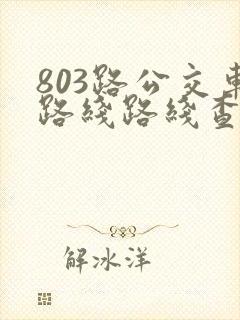 803路公交車
路綫路綫查
解冰洋